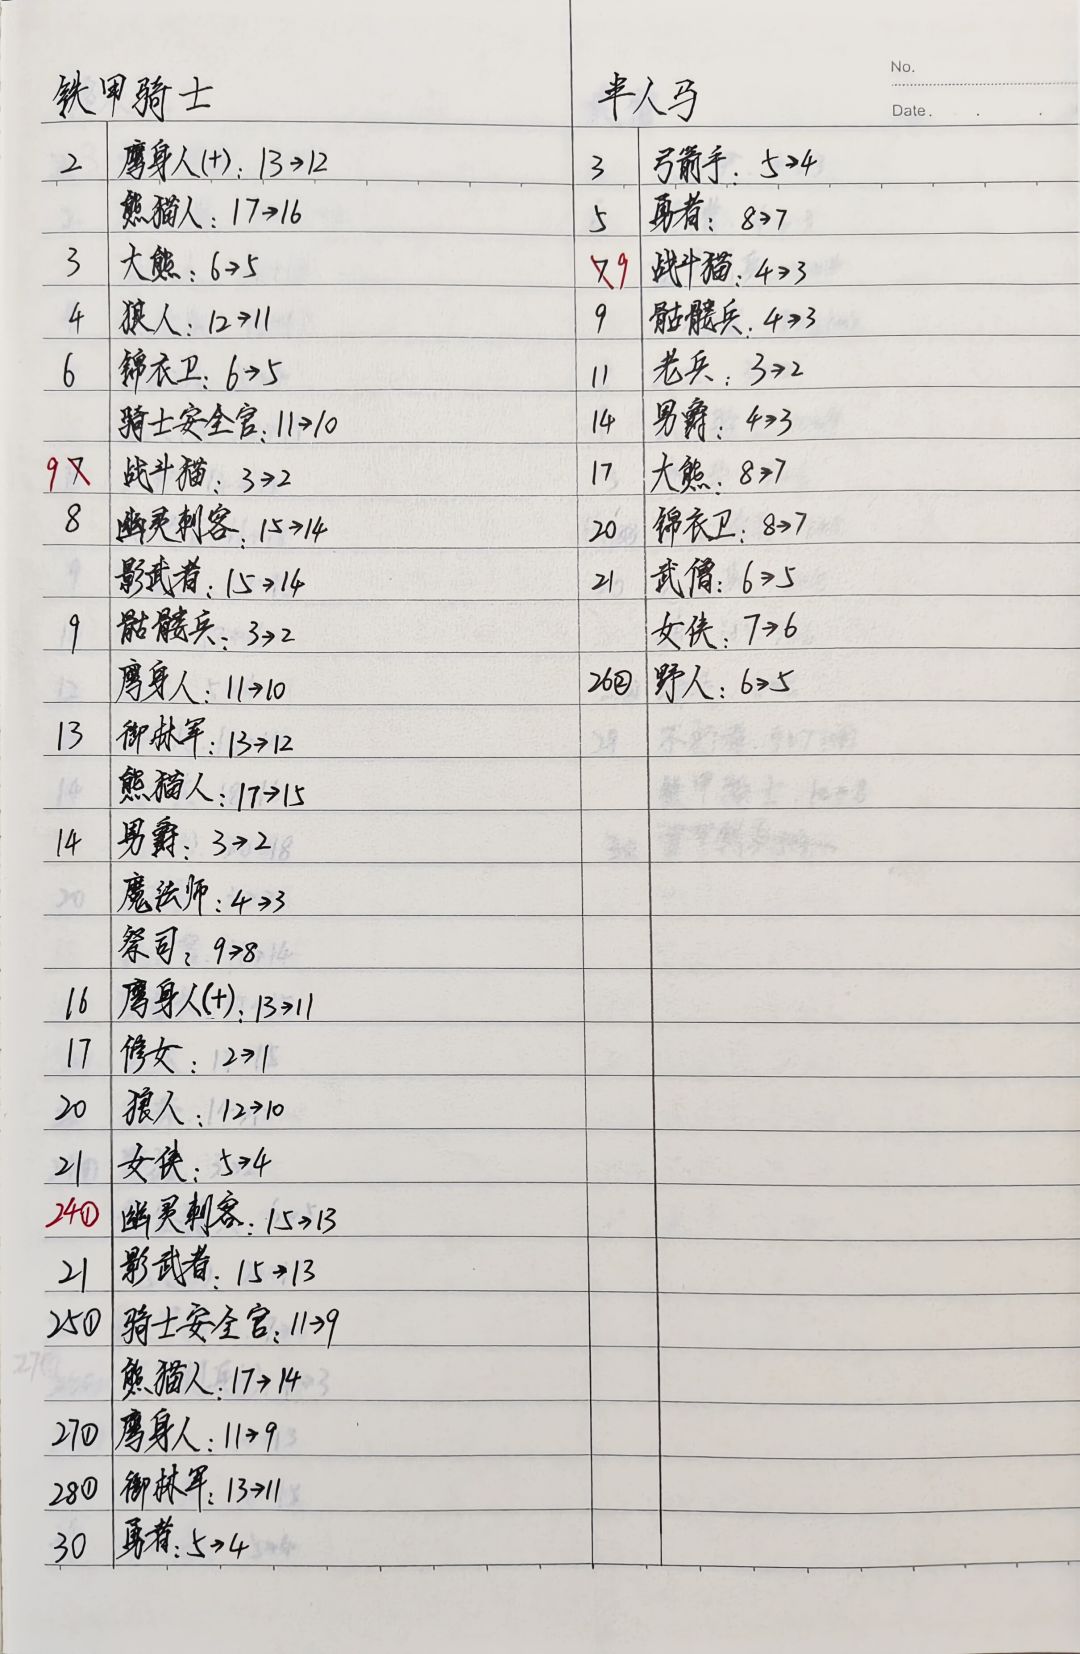 No.
Date.
铁甲骑士
2 鹰身人(+): 13→12
熊猫人: 17→16
3 大熊: 6→5
4 狼人: 12→11
6 锦衣卫: 6→5
骑士安全官: 11→10
9 7 战斗猫: 3→2
8 幽灵刺客: 15→14
影武者: 15→14
9 骷髅兵: 3→2
鹰身人: 11→10
13 御林军: 13→12
熊猫人: 17→15
14 男爵: 3→2
魔法师: 4→3
祭司: 9→8
16 鹰身人(+): 13→11
17 修女: 2→1
20 狼人: 12→10
21 女侠: 5→4
24① 幽灵刺客: 15→13
21 影武者: 15→13
25① 骑士安全官: 11→9
熊猫人: 17→14
27① 鹰身人: 11→9
28① 御林军: 13→11
30 勇者: 5→4
半人马
3 弓箭手: 5→4
5 勇者: 8→7
7 9 战斗猫: 4→3
9 骷髅兵: 4→3
11 老兵: 3→2
14 男爵: 4→3
17 大熊: 8→7
20 锦衣卫: 8→7
21 武僧: 6→5
女侠: 7→6
26② 野人: 6→5